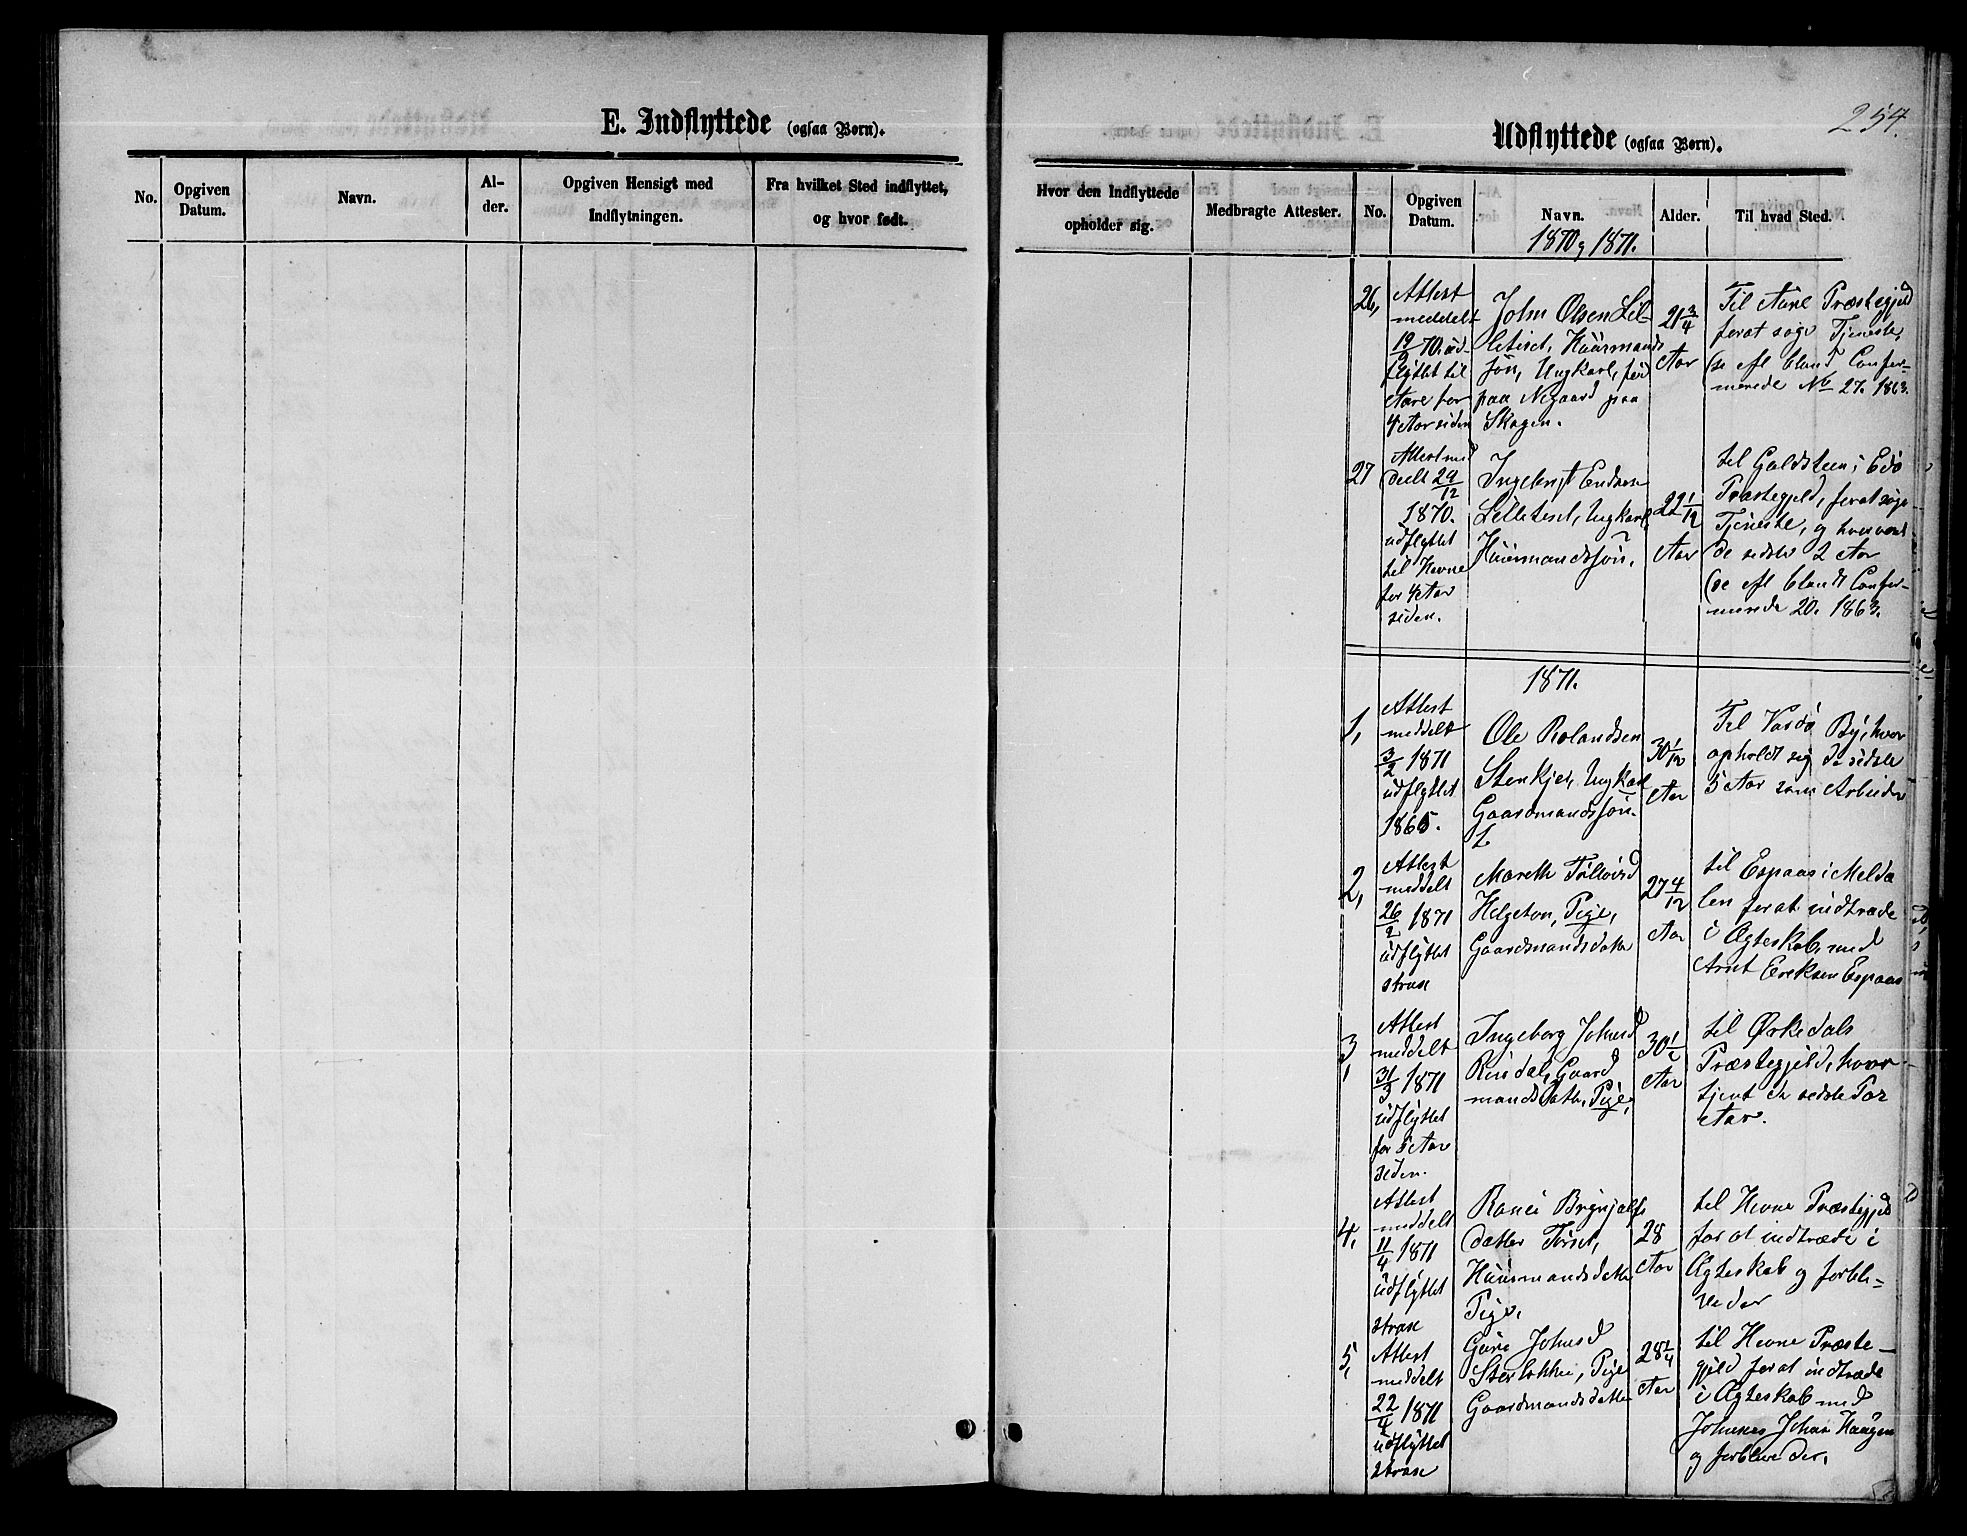 E. Indflyttede (ogsaa Børn).
No.
Opgiven Datum.
Navn.
Al-
der.
Opgiven Hensigt med
Indflytningen.
Fra hvilket Sted indflyttet,
og hvor født.
254.
Udflyttede (ogsaa Børn).
Hvor den Indflyttede
opholder sig.
Medbragte Attester.
No.
Opgiven
Datum.
Navn.
Alder.
Til hvad Sted.
1870 og 1871.
26,
Attest
meddelt
19/9 70. ud-
flyttet til
Aure for
4 Aar siden
John Olsen Lil-
letiset, Huusmands
søn, Ungkarl, fød
paa Negaard paa
Skagen.
21 3/4
Aar
Til Aure Præstegjeld
for at søge Tjeneste,
se efl bland Confir-
merede No 27. 1863.
27
Attest med
deelt 29/12
1870.
udflyttet
til Hevne
for 4 Aar
siden.
Ingebrigt Endresen
Lilletiset, Ungkarl,
Huusmandssøn.
22 1/12
Aar
til Guldsteen i Edø
Præstegjeld, for at søge
Tjeneste, og hvor været
de sidste 2 Aar
se efl blandt Confir-
merede 20. 1863.
1871.
1,
Attest
meddelt
3/2 1871
udflyttet
1865.
Ole Rolandsen
Stenkjer, Ungkarl
Gaardmandssøn.
30 1/12
Aar
Til Vardø By, hvor
opholdt sig de sidste
5 Aar som Arbeider
2,
Attest
meddelt
26/2 1871
udflyttet
strax
Mareth Tollevsd
Helgeton, Pige,
Gaardsmandsdatter
27 4/12
Aar
til Espaas i Melda
len for at indtræde
i Ægteskab med
Arnt Eriksen Espaas
3,
Attest
meddelt
31/3 1871
udflyttet
for 5 Aar
siden.
Ingeborg Johnsd
Rindal, Gaard
mandsdatter, Pige,
30 1/2
Aar
til Ørkedals
Præstegjeld, hvor
tjent de sidste Par
Aar.
4,
Attest
meddelt
11/4 1871
udflyttet
strax
Ranei Brynjolfs
datter Torset,
Huusmandsdatter
Pige,
28
Aar
til Hevne Præstegjeld
for at indtræde i
Ægteskab og forbli-
ve der
5,
Attest
meddelt
22/4 1871
udflyttet
strax
Guri Johnsd
Storløkken, Pige
Gaardmandsdatter
28 1/4
Aar
til Hevne Præste-
gjeld for at indtræde
i Ægteskab med
Johannes Johns Haugen
og forblive der.